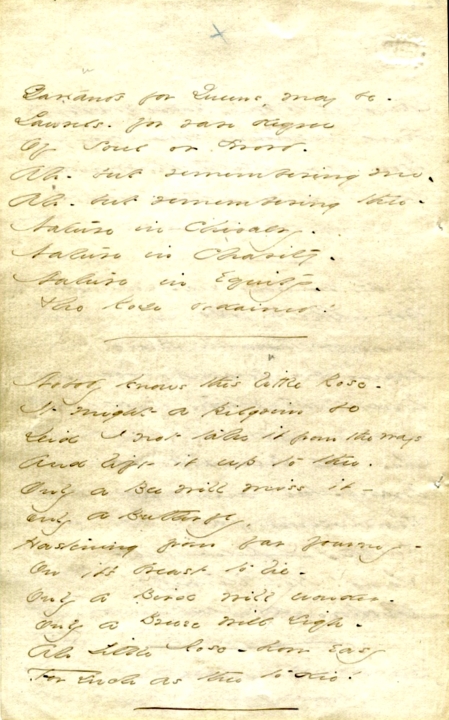 Garlands for Queens, may be -
Laurels - for rare degree
Of Soul or Sword.
Ah - but remembering me -
Ah - but remembering thee -
Nature in Chivalry -
Nature in Charity -
Nature in Equity -
The Rose ordained!
Nobody knows this little Rose -
It might a Pilgrim be
Did I not take it from the ways
And lift it up to thee.
Only a Bee will miss it -
Only a Butterfly,
Hastening from far journey -
On its breast to lie -
Only a Bird will wonder -
Only a Breeze will sigh -
Ah Little Rose - how easy
For such as thee to die!